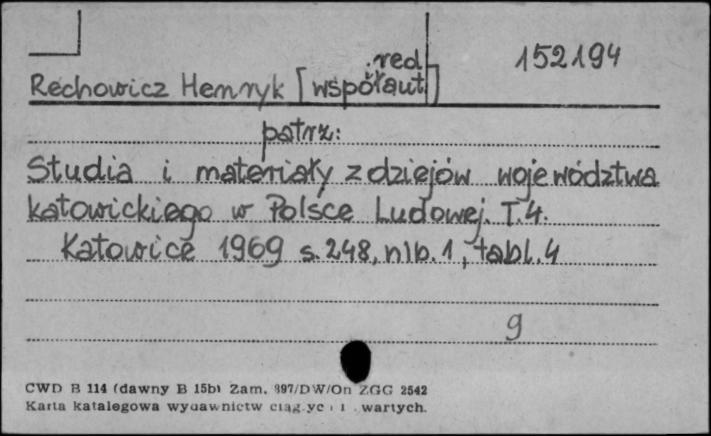 152194
red
Rechowicz Henryk [współaut]
patrz:
Studia i materiały z dziejów województwa
katowickiego w Polsce Ludowej. T.4.
Katowice 1969 s.248, nlb.1, tabl.4
9
CWD B 114 (dawny B 15b) Zam. 897/DW/On ZGG 2542
Karta katalogowa wydawnictw wartych.